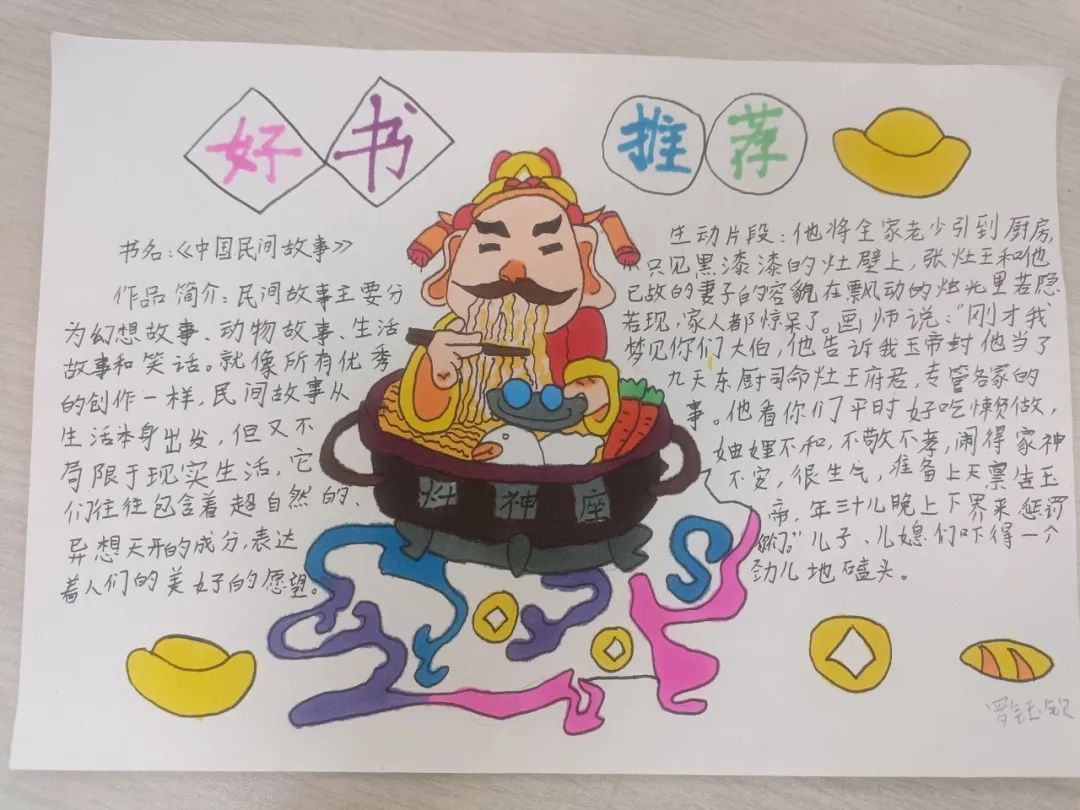 好书
推荐
书名:《中国民间故事》
作品简介:民间故事主要分
为幻想故事、动物故事、生活
故事和笑话。就像所有优秀
的创作一样,民间故事从
生活本身出发,但又不
局限于现实生活,它
们往往包含着超自然的、
异想天开的成分,表达
着人们的美好的愿望。
生动片段:他将全家老少引到厨房,
只见黑漆漆的灶壁上,张灶王和他
已故的妻子的容貌在飘动的烛光里若隐
若现,家人都惊呆了。画师说:“刚才我
梦见你们大伯,他告诉我玉帝封他当了
九天东厨司命灶王府君,专管各家的
事。他看你们平时好吃懒做,
妯娌不和,不敬不孝,闹得家神
不安,很生气,准备上天禀告玉
帝,年三十儿晚上下界来惩罚
你们。”儿子、儿媳们吓得一个
劲儿地磕头。
灶神座